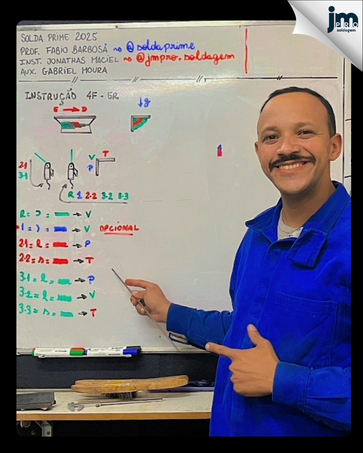 jm
PRO
soldagem
SOLDA PRIME 2025
PROF. FABIO BARBOSA → @soldaprime
INST. JONATHAS MACIEL → @jmpro.soldagem
AUX. GABRIEL MOURA
INSTRUÇÃO 4F - GR
E → D
g
T
V
P
2.1
3.1
R 1 2.2 3.2 3.3
R = → V
1 = → V OPCIONAL
2.1 = → P
2.2 = → T
3.1 = → P
3.2 = → V
3.3 = → T